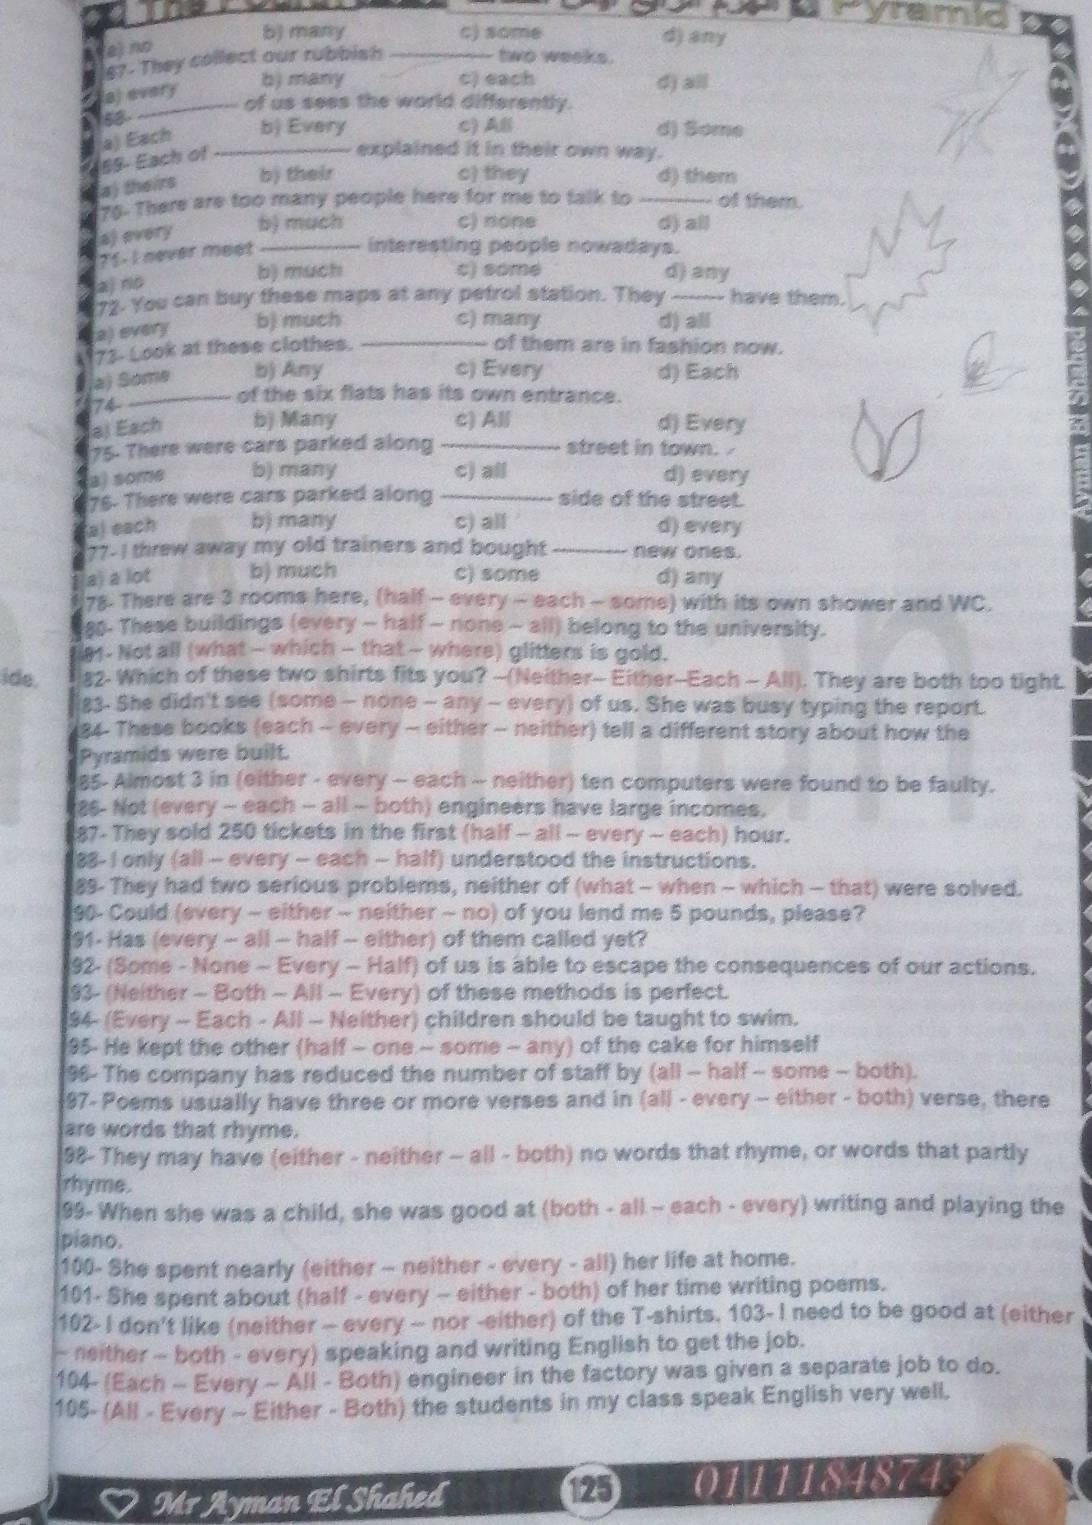 Pyramid
a) no b) many c) some d) any
67- They collect our rubbish ------------ two weeks.
a) every b) many c) each d) all
68- ------------ of us sees the world differently.
a) Each b) Every c) All d) Some
69- Each of ---------------- explained it in their own way.
a) theirs b) their c) they d) them
70- There are too many people here for me to talk to --------- of them.
a) every b) much c) none d) all
71- I never meet ------------ interesting people nowadays.
a) no b) much c) some d) any
72- You can buy these maps at any petrol station. They ------ have them.
a) every b) much c) many d) all
73- Look at these clothes. --------------- of them are in fashion now.
a) Some b) Any c) Every d) Each
74- ------------ of the six flats has its own entrance.
a) Each b) Many c) All d) Every
75- There were cars parked along -------------- street in town.
a) some b) many c) all d) every
76- There were cars parked along ------------- side of the street.
a) each b) many c) all d) every
77- I threw away my old trainers and bought --------- new ones.
a) a lot b) much c) some d) any
78- There are 3 rooms here, (half – every – each – some) with its own shower and WC.
80- These buildings (every – half – none – all) belong to the university.
81- Not all (what – which – that – where) glitters is gold.
ide. 82- Which of these two shirts fits you? –(Neither– Either–Each – All). They are both too tight.
83- She didn't see (some – none – any – every) of us. She was busy typing the report.
84- These books (each – every – either – neither) tell a different story about how the
Pyramids were built.
85- Almost 3 in (either - every – each – neither) ten computers were found to be faulty.
86- Not (every – each – all – both) engineers have large incomes.
87- They sold 250 tickets in the first (half – all – every – each) hour.
88- I only (all – every – each – half) understood the instructions.
89- They had two serious problems, neither of (what – when – which – that) were solved.
90- Could (every – either – neither – no) of you lend me 5 pounds, please?
91- Has (every – all – half – either) of them called yet?
92- (Some - None – Every – Half) of us is able to escape the consequences of our actions.
93- (Neither – Both – All – Every) of these methods is perfect.
94- (Every – Each - All – Neither) children should be taught to swim.
95- He kept the other (half – one – some – any) of the cake for himself
96- The company has reduced the number of staff by (all – half – some – both).
97- Poems usually have three or more verses and in (all - every – either - both) verse, there
are words that rhyme.
98- They may have (either - neither – all - both) no words that rhyme, or words that partly
rhyme.
99- When she was a child, she was good at (both - all – each - every) writing and playing the
piano.
100- She spent nearly (either – neither - every - all) her life at home.
101- She spent about (half - every – either - both) of her time writing poems.
102- I don't like (neither – every – nor -either) of the T-shirts. 103- I need to be good at (either
– neither – both - every) speaking and writing English to get the job.
104- (Each – Every – All - Both) engineer in the factory was given a separate job to do.
105- (All - Every – Either - Both) the students in my class speak English very well.
Ayman El Shahed
Mr Ayman El Shahed 125 0111184874